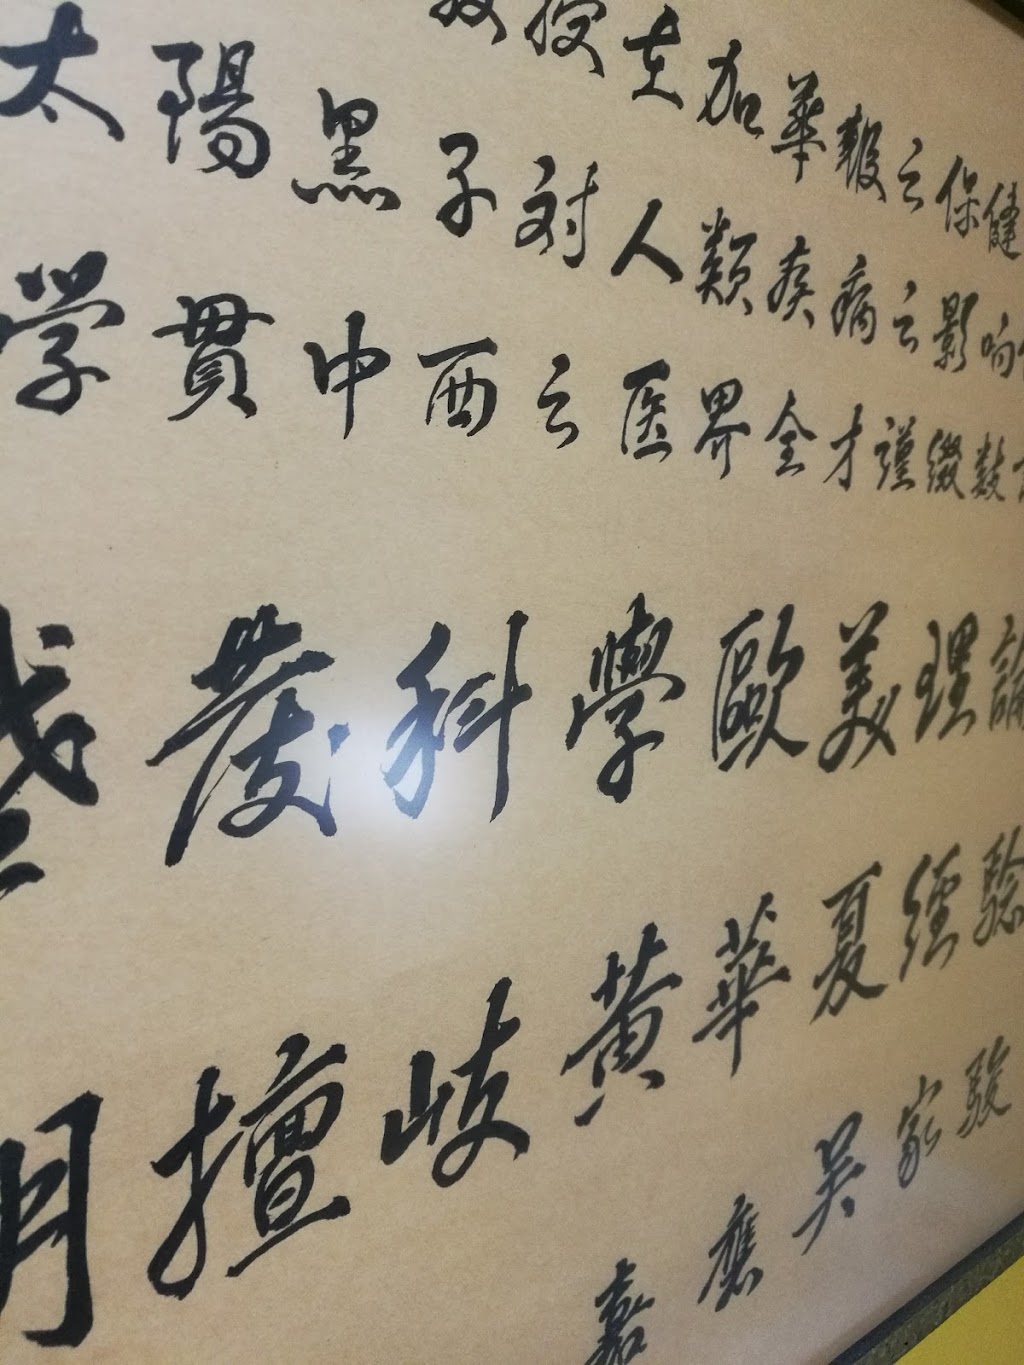 授在加華報之保健
太陽黑子対人類疾病之影响
学貫中西之医界全才謹綴数
發科學歐美理論
擅岐黄華夏經驗
嘉應吴家駿